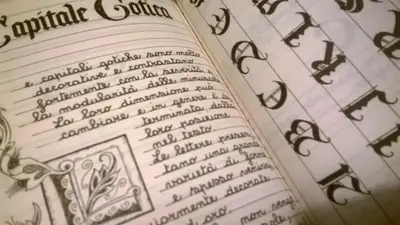 Capitale Gotica
e capitali gotiche sono molto
decorative e contrastano
fortemente con la severità e
la modularità delle minuscole
La loro dimensione può
cambiare e in genere è de
terminato dalla
loro posizione
nel testo
Le lettere presen
tano una grande
varietà di forme
e spesso venivano
riamente decorate
d oro
non